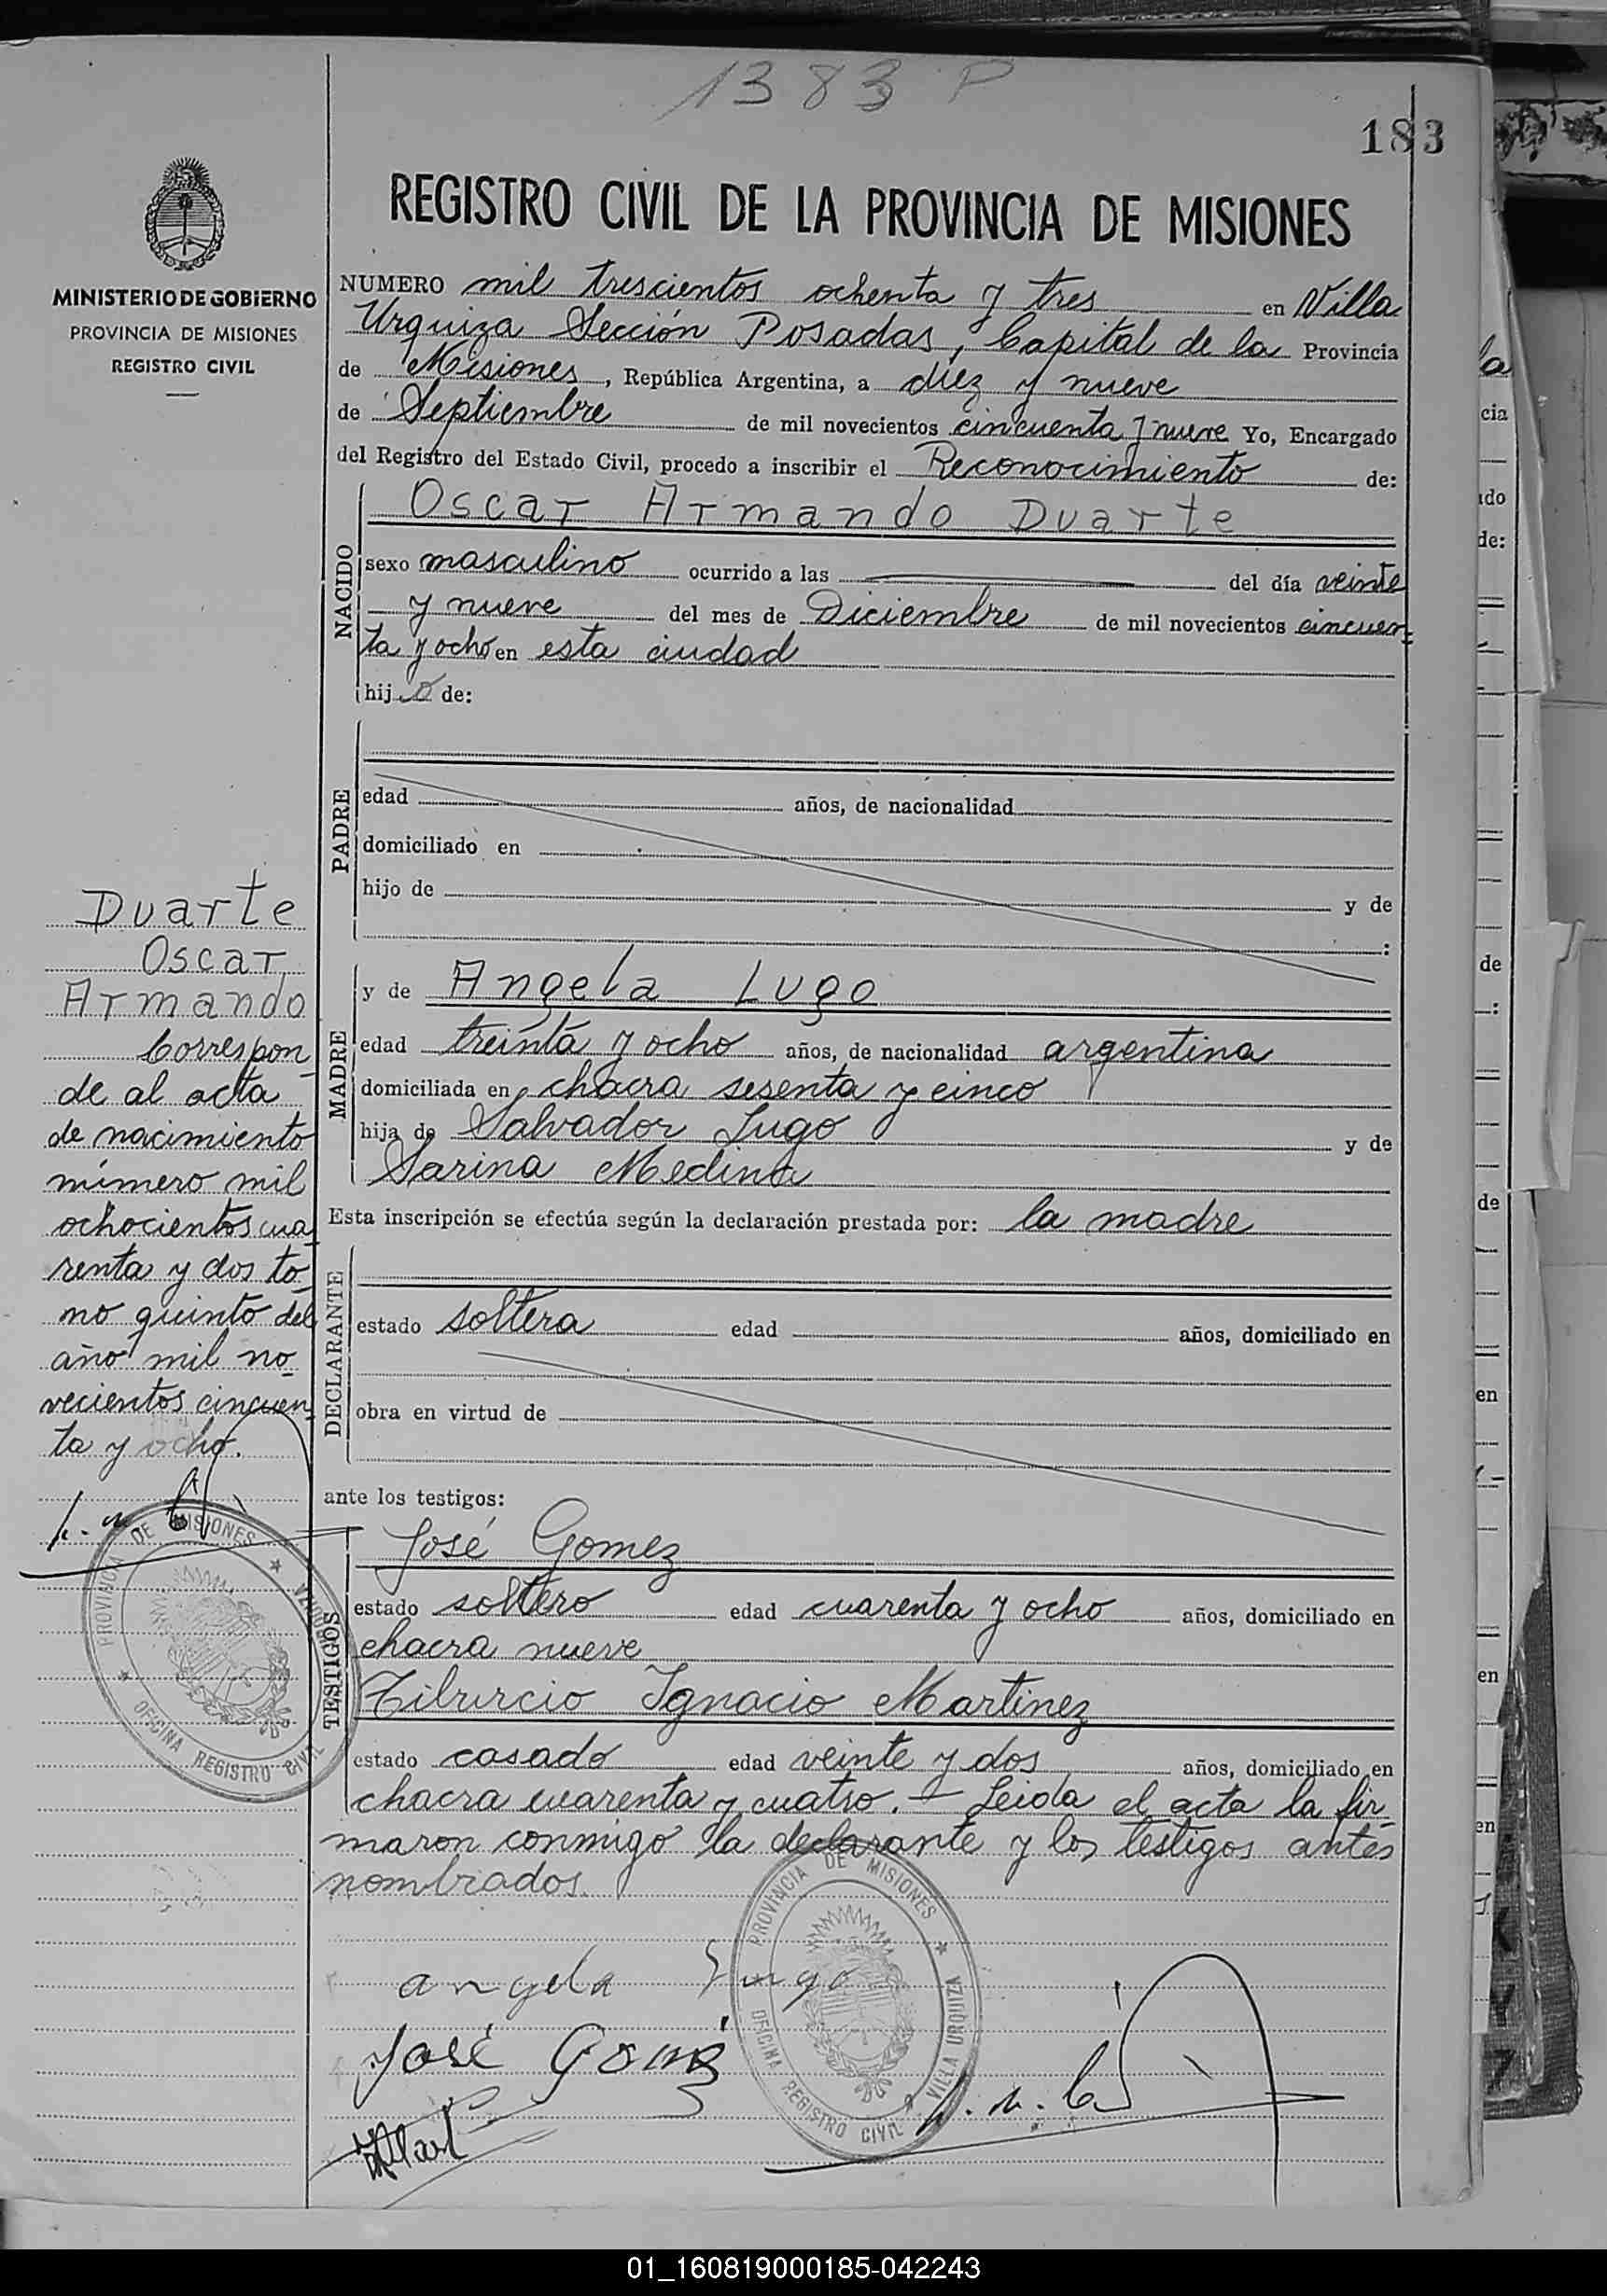 1383 P
183
MINISTERIO DE GOBIERNO
PROVINCIA DE MISIONES
REGISTRO CIVIL
REGISTRO CIVIL DE LA PROVINCIA DE MISIONES
NUMERO mil trescientos ochenta y tres en Villa
Urquiza Sección Posadas, Capital de la Provincia
de Misiones, República Argentina, a diez y nueve
de Septiembre de mil novecientos cincuenta y nueve Yo, Encargado
del Registro del Estado Civil, procedo a inscribir el Reconocimiento de:
NACIDO
Oscar Armando Duarte
sexo masculino ocurrido a las del día veinte
y nueve del mes de Diciembre de mil novecientos cincuen-
ta y ocho en esta ciudad
hijo de:
PADRE
edad años, de nacionalidad
domiciliado en
hijo de y de
:
MADRE
y de Angela Lugo
edad treinta y ocho años, de nacionalidad argentina
domiciliada en chacra sesenta y cinco
hija de Salvador Lugo y de
Sarina Medina
Esta inscripción se efectúa según la declaración prestada por: la madre
DECLARANTE
estado soltera edad años, domiciliado en
obra en virtud de
ante los testigos:
TESTIGOS
José Gomez
estado soltero edad cuarenta y ocho años, domiciliado en
chacra nueve
Tiburcio Ignacio Martinez
estado casado edad veinte y dos años, domiciliado en
chacra cuarenta y cuatro. - Leida el acta la fir-
maron conmigo la declarante y los testigos antes
nombrados.
Duarte
Oscar
Armando
Correspon-
de al acta
de nacimiento
número mil
ochocientos cua-
renta y dos to-
mo quinto del
año mil no-
vecientos cincuen-
ta y ocho.
PROVINCIA DE MISIONES
OFICINA REGISTRO CIVIL
Angela Lugo
José Gomez
PROVINCIA DE MISIONES
VILLA URQUIZA
OFICINA REGISTRO CIVIL
01_160819000185-042243